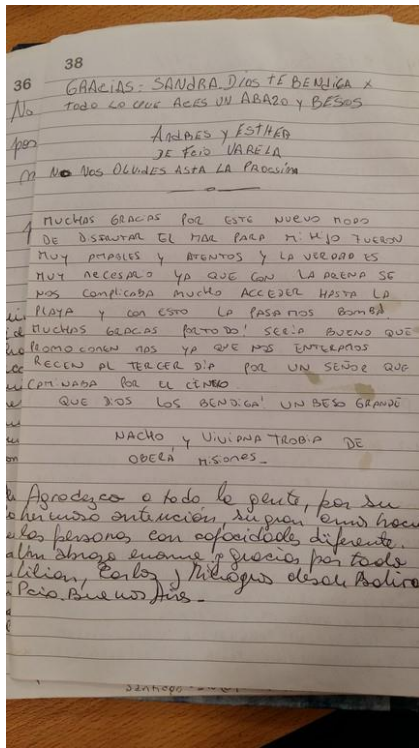 38
36
GRACIAS: SANDRA. DIOS TE BENDIGA X
TODO LO QUE ACES UN ABAZO Y BESOS
ANDRES Y ESTHER
DE FCIO VARELA
NO NOS OLVIDES ASTA LA PROCSIMA
MUCHAS GRACIAS POR ESTE NUEVO MODO
DE DISFRUTAR EL MAR PARA MI HIJO FUERON
MUY AMABLES Y ATENTOS Y LA VERDAD ES
MUY NECESARIO YA QUE CON LA ARENA SE
NOS COMPLICABA MUCHO ACCEDER HASTA LA
PLAYA Y CON ESTO LA PASAMOS BOMBA
MUCHAS GRACIAS POR TODO! SERIA BUENO QUE
PROMOCIONEN MAS YA QUE NOS ENTERAMOS
RECEN AL TERCER DÍA POR UN SEÑOR QUE
CAMINABA POR EL CENTRO
QUE DIOS LOS BENDIGA! UN BESO GRANDE
NACHO Y VIVIANA TROBIA DE
OBERÁ MISIONES_
Agradezco a toda la gente, por su
hermosa antención, su gran amor hacia
las personas con capacidades diferente.
Un abrazo enorme y gracias por todo
Lilian, Carlos y Milagros desde Bolivar
Pcia. Buenos Aires_